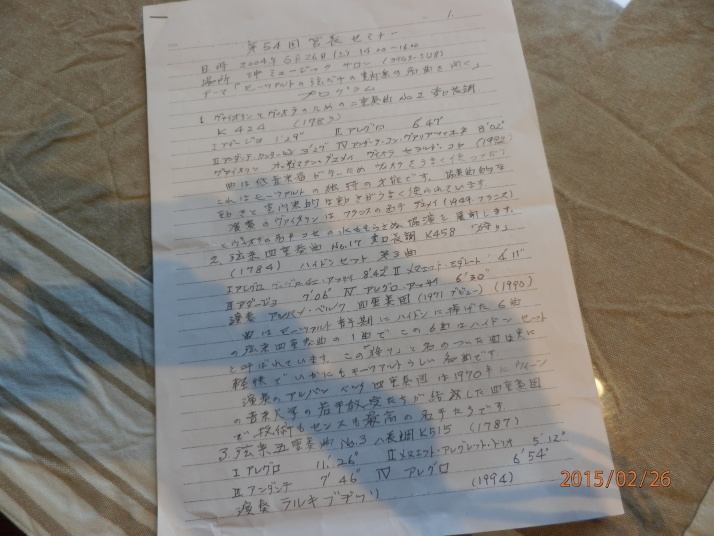 1.
第54回 宮長セミナー
日時 2004年6月26日(土) 14:00~16:00
場所 ミュージック サロン
テーマ「モーツァルトの弦だけの重奏の名曲を聴く」
プログラム
1. ヴァイオリンとヴィオラのための二重奏曲 No.2 変ロ長調
K 424 (1783)
I アダージョ 1'29" II アレグロ 6'47"
III アンダンテ・カンタービレ 3'27" IV アンダンテ・コン・ヴァリアツィオネ 8'02"
ヴァイオリン オーギュスタン・デュメイ ヴィオラ
曲は低音楽器がないためヴィオラをうまく使って
これはモーツァルトの独特の才能です。協奏曲的な
動きと室内楽的な動きがうまく使われています。
演奏のヴァイオリンはフランスの名手デュメイ(1949 フランス)
とヴィオラの名手コセの 協演を展開します。
2. 弦楽四重奏曲 No.17 変ロ長調 K458 「狩り」
(1784) ハイドンセット 第3曲
I アレグロ アッサイ 8'42" II メヌエット・モデラート 4'11"
III アダージョ 7'06" IV アレグロ・アッサイ 6'30"
演奏 アルバン・ベルク 四重奏団 (1971 デビュー)
曲はモーツァルト 期にハイドンに捧げた6曲
の弦楽四重奏曲の1曲でこの6曲はハイドンセット
と呼ばれています。この「狩り」と名のついた曲は実に
軽快でいかにもモーツァルトらしい名曲です
演奏のアルバン ベルク 四重奏団は1970年にウィーン
の音楽大学の若手教授たちが結成した四重奏団
で技術もセンスも最高の名手たちです。
3. 弦楽五重奏曲 No.3 ハ長調 K515 (1787)
I アレグロ 11'26" II メヌエット・アレグレット・トリオ 5'12"
III アンダンテ 7'46" IV アレグロ 6'54"
演奏 ラルキブデッリ (1994)
2015/02/26